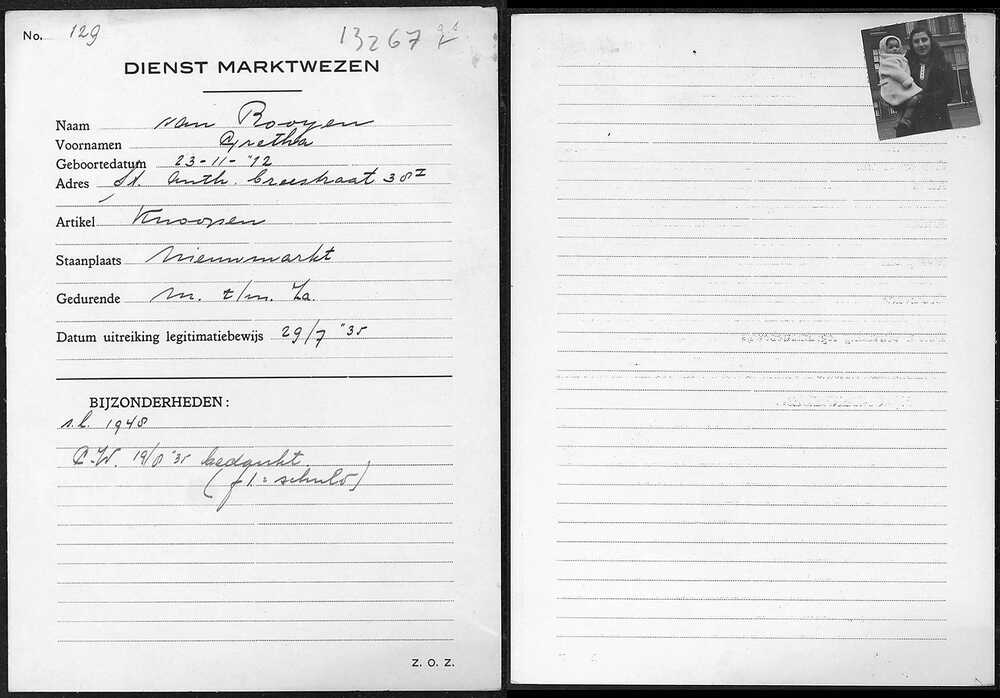 No. 129
13267
DIENST MARKTWEZEN
Naam van Rooyen
Voornamen Gretha
Geboortedatum 23-11-'12
Adres St. Anth. breestraat 38 I
Artikel Knoopen
Staanplaats Nieuwmarkt
Gedurende M. t/m. Za.
Datum uitreiking legitimatiebewijs 29/7 '35
BIJZONDERHEDEN:
s.l. 1948
C.W. 19/8 '35 bedankt
(f 1 = schuld)
Z. O. Z.